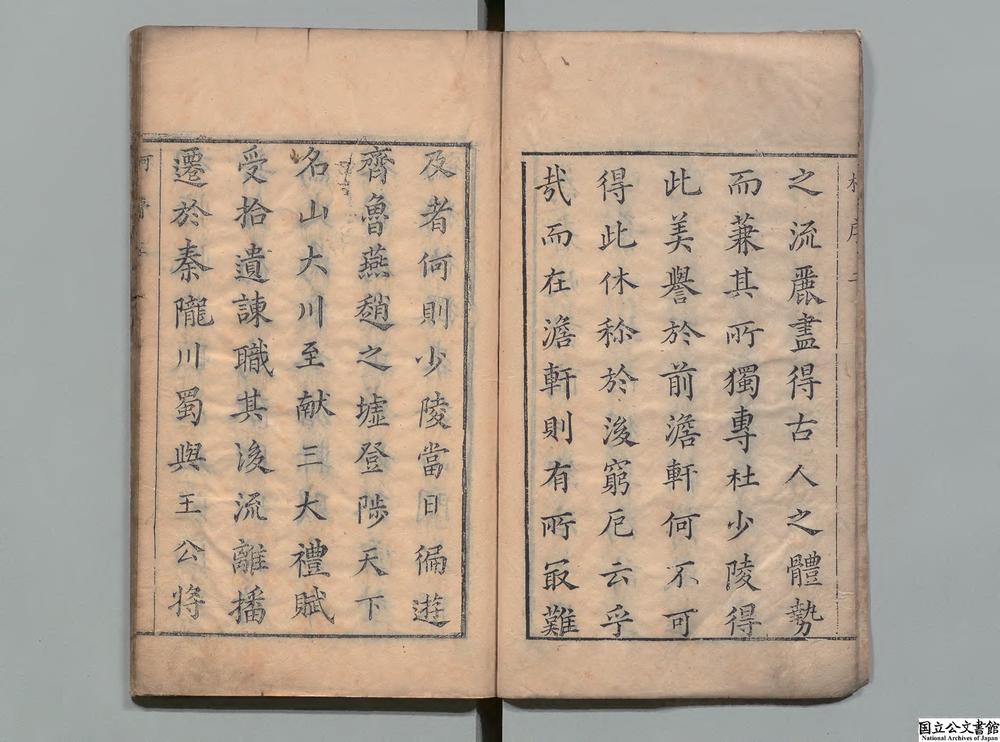 之流麗盡得古人之體勢
而蒹其所獨專杜少陵得
此美譽於前澹軒何不可
得此休称於後窮厄云乎
哉而在澹軒則有所最難
及者何則少陵當日徧遊
齊魯燕趙之墟登陟天下
名山大川至献三大禮賦
受拾遺諫職其後流離播
遷於秦隴川蜀與王公將
国立公文書館
National Archives of Japan